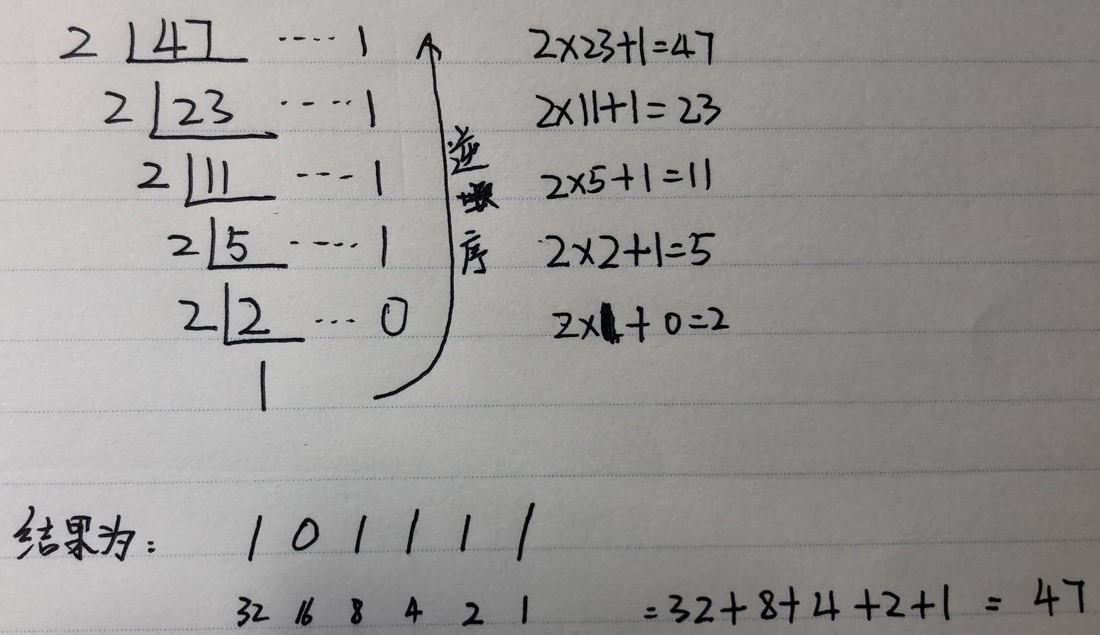 2 47 ···· 1 2×23+1=47
2 23 ···· 1 2×11+1=23
2 11 ···· 1 2×5+1=11
2 5 ···· 1 2×2+1=5
2 2 ··· 0 2×1+0=2
1
逆
序
结果为: 1 0 1 1 1 1
32 16 8 4 2 1 =32+8+4+2+1 = 47